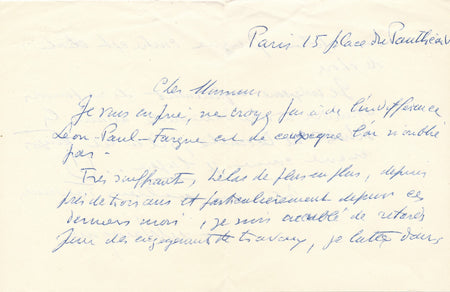 Paris 15 place du Panthéon
Cher Monsieur
Je vous en prie, ne croyez pas à de l'indifférence,
Léon-Paul-Fargue est de ceux que l'on n'oublie
pas -
Très souffrant, hélas de plus en plus, depuis
près de trois ans et particulièrement depuis ces
derniers mois, je suis accablé de retards
dans des engagements de travaux, je lutte dans